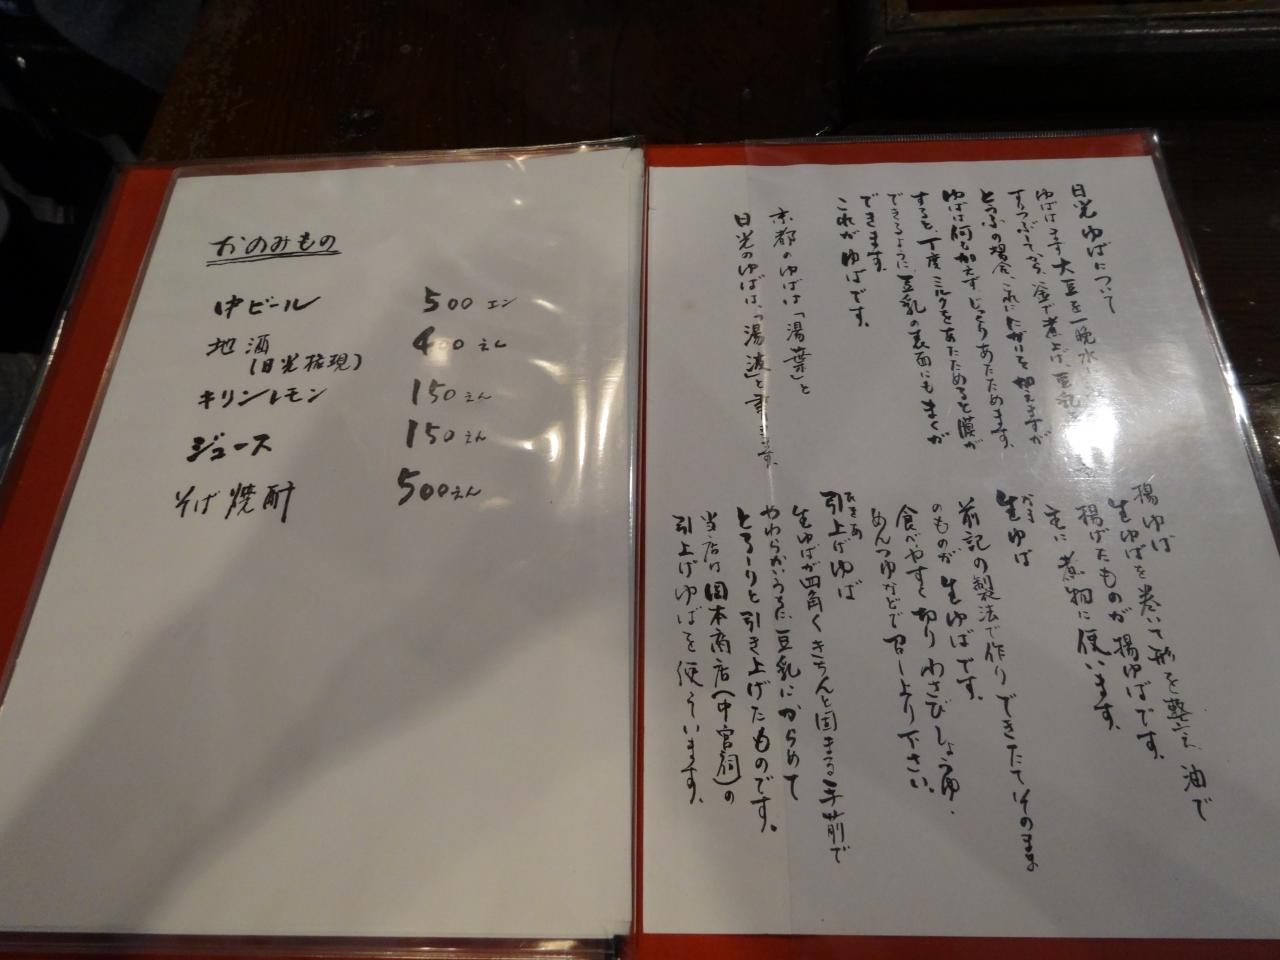 おのみもの
中ビール 500エン
地酒 400えん
(日光権現)
キリンレモン 150えん
ジュース 150えん
そば焼酎 500えん
日光ゆばについて
ゆばはまず大豆を一晩水
すりつぶしてから、釜で煮上げ、豆乳
とうふの場合、これににがりを加えますが
ゆばは何も加えずじっくりあたためます。
すると丁度ミルクをあたためると膜が
できるように、豆乳の表面にもまくが
できます。
これがゆばです。
京都のゆばは「湯葉」と
日光のゆばは、「湯波」と書きます。
揚ゆば
生ゆばを巻いて形を整え、油で
揚げたものが揚ゆばです。
主に煮物に使います。
なま
生ゆば
前記の製法で作りできたてそのまま
のものが生ゆばです。
食べやすく切りわさびしょうゆ、
めんつゆなどでめし上り下さい。
ひきあ
引上げゆば
生ゆばが四角くきちんと固まる手前で
やわらかいうちに豆乳にからめて
とろーりと引き上げたものです。
当店は岡本商店(中宮祠)の
引上げゆばを使ています。